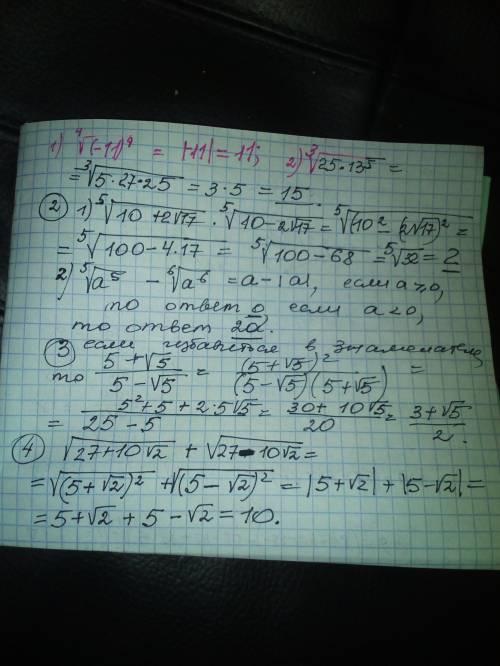 1) ⁴√(-11)⁴ = |-11| = 11; 2) ³√25·135 =
= ³√5·27·25 = 3·5 = 15.
② 1) ⁵√10+2√17 · ⁵√10-2√17 = ⁵√(10² - (2√17)² =
= ⁵√100-4·17 = ⁵√100-68 = ⁵√32 = 2
2) ⁵√a⁵ - ⁶√a⁶ = a-|a|, если a≥0,
то ответ 0, если a<0,
то ответ 2a.
③ если избавиться в знаменателе,
то (5+√5)/(5-√5) = (5+√5)²/((5-√5)(5+√5)) =
= (5²+5+2·5√5)/(25-5) = (30+10√5)/20 = (3+√5)/2.
④ √27+10√2 + √27-10√2 =
= √(5+√2)² + √(5-√2)² = |5+√2| + |5-√2| =
= 5+√2 + 5-√2 = 10.